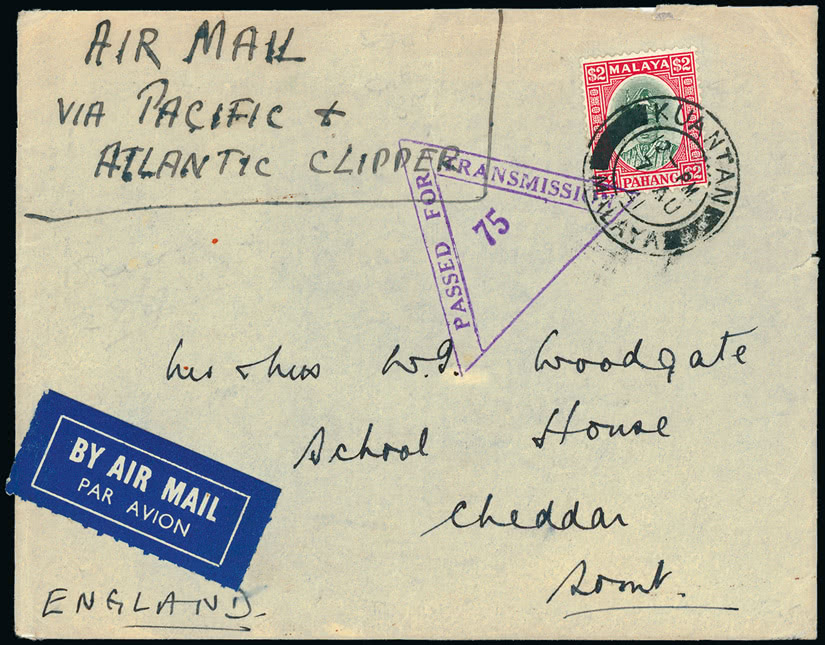 AIR MAIL
VIA PACIFIC &
ATLANTIC CLIPPER
$2 MALAYA $2
PAHANG $2
KUANTAN
PM
AU
41
MALAYA
PASSED FOR TRANSMISSION
75
Mr & Mrs W.J. Woodgate
School House
Cheddar
Somt.
BY AIR MAIL
PAR AVION
ENGLAND.